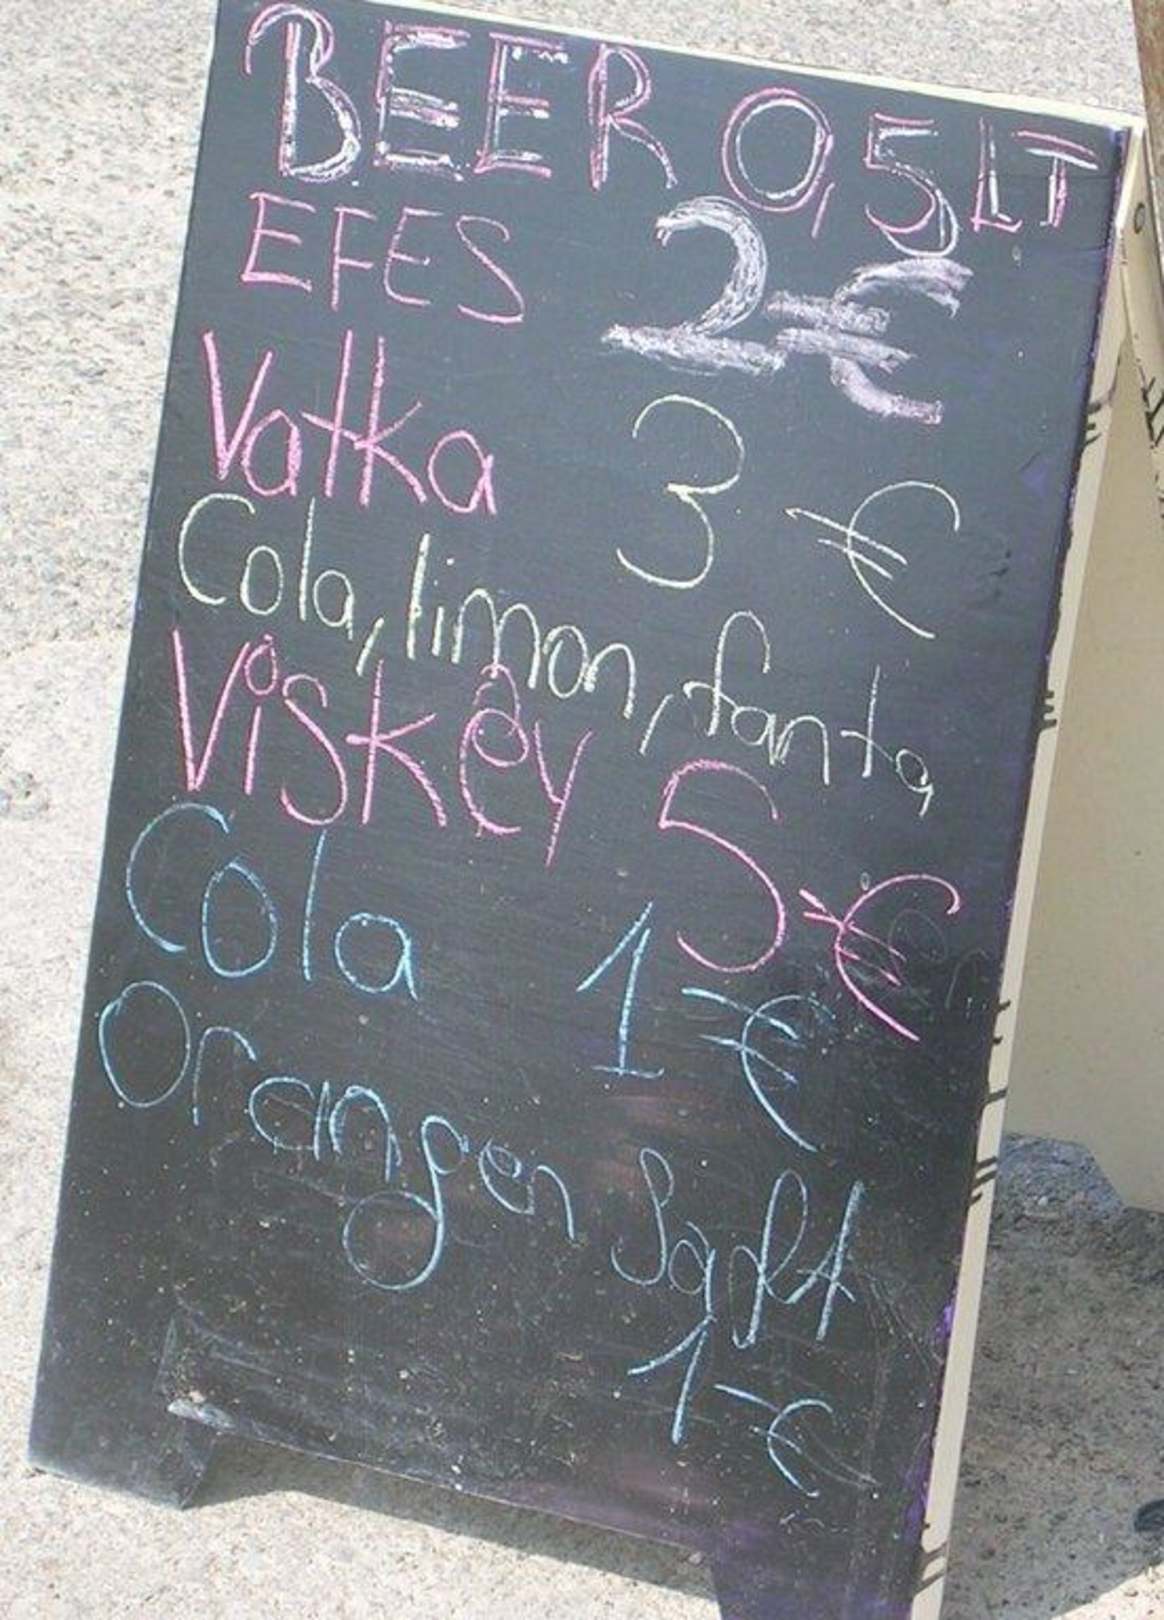 BEER 0,5 LT
EFES 2€
Vatka 3 €
Cola, limon, fanta,
Viskey 5€
Cola 1€
Orangen Saft
1€